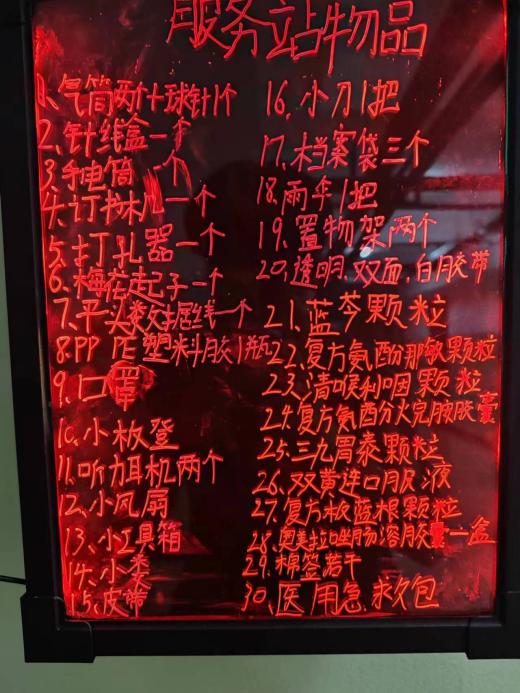 服务站物品
1、气筒两个+球针1个
2、针线盒一个
3、手电筒一个
4、订书机一个
5、打孔器一个
6、梅花起子一个
7、平头数据线一个
8、PP PE塑料胶1瓶
9、口罩
10、小板登
11、听力耳机两个
12、小风扇
13、小工具箱
14、小
15、皮带
16、小刀1把
17、档案袋三个
18、雨伞1把
19、置物架两个
20、透明、双面、白胶带
21、蓝芩颗粒
22、复方氨酚那敏颗粒
23、清喉利咽颗粒
24、复方氨酚烷胺胶囊
25、三九胃泰颗粒
26、双黄连口服液
27、复方板蓝根颗粒
28、奥美拉唑肠溶胶囊一盒
29、棉签若干
30、医用急救包